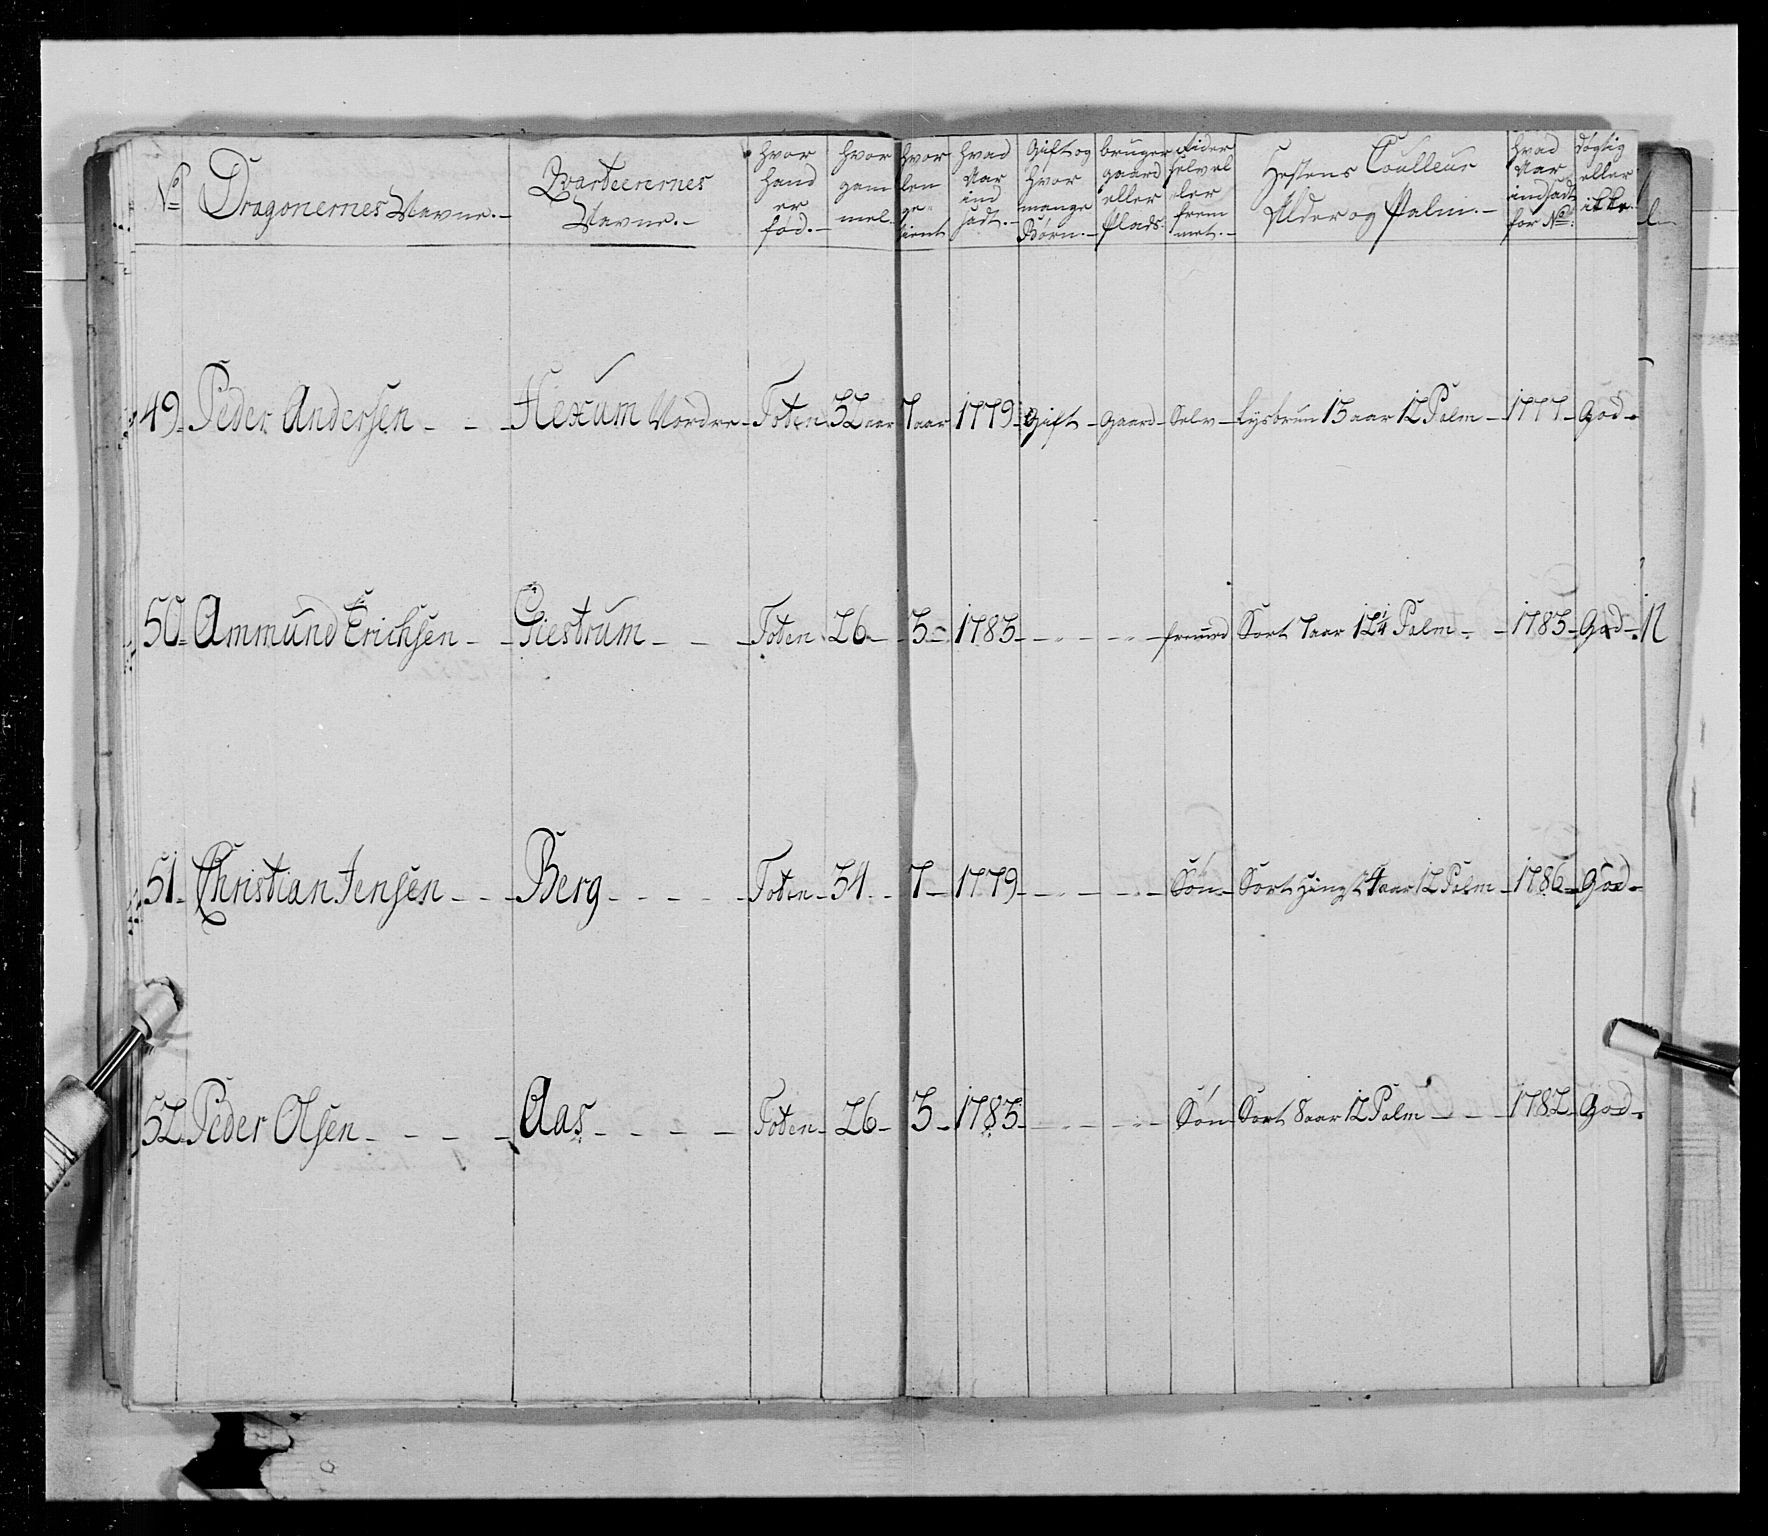 No Dragonernes Navne. Qvarteerernes Navne. hvor hand er fød. hvor gam mel hvor len ge tient hvad Aar ind sadt. Gift og hvor mange Børn. bruger gaard eller Plads. Rider selv el ler frem met. Hestens Coulleur Alder og Palm. hvad Aar indsadt for No dögtig eller ikke.
49. Peder Andersen - - - Hexum Nordre - Toten 32 aar 7 aar 1779 Gift - gaard - Selv - Lysbrun 13 aar 12 Palm - 1777 - God -
50. Ammund Erichsen - - Giestrum - - - Toten 26 - 3 - 1783 - - - - - fremed Sort 7 aar 12 1/4 Palm - - 1783 - God -
51. Christian Jensen - - - Berg - - - - - Toten - 34 - - 7 - 1779 - - - - - Søn - Sort Hingst 4 aar 12 Palm - 1786 - God -
52. Peder Olsen - - - - - Aas - - - - - Toten - 26 - 3 - 1783 - - - - - Søn - Sort 8 aar 12 Palm - - - 1782 - God -